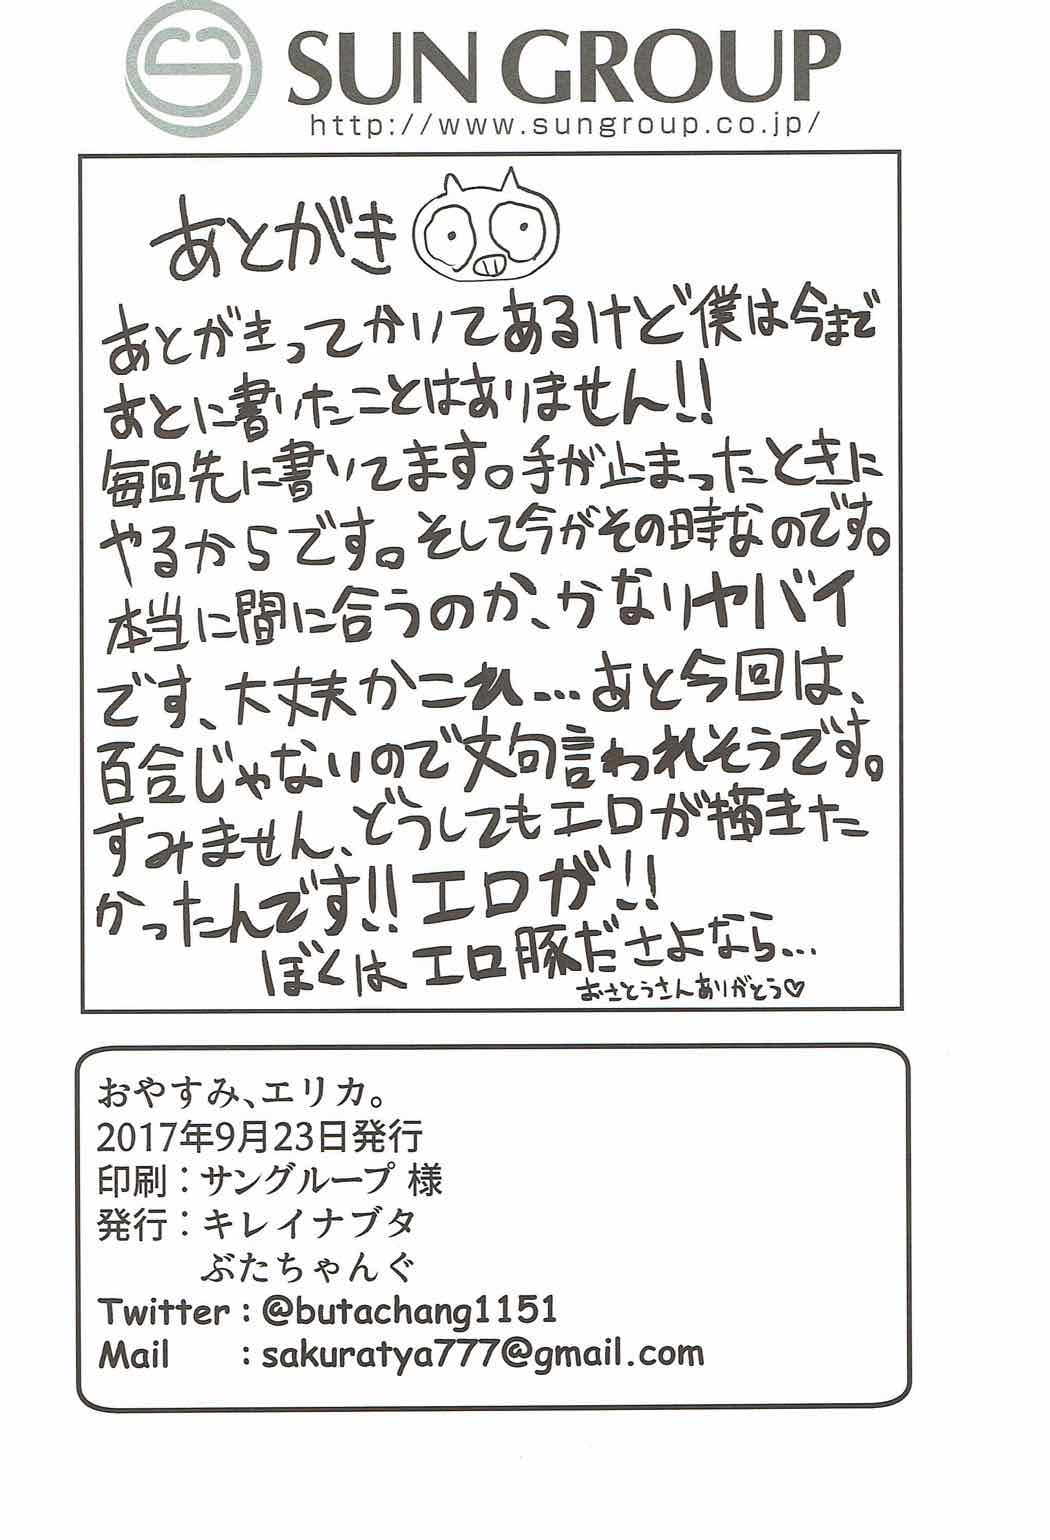 SUN GROUP
http://www.sungroup.co.jp/
あとがき
あとがきってかいてあるけど僕は今まで
あとに書いたことはありません!!
毎回先に書いてます。手が止まったときに
やるからです。そして今がその時なのです。
本当に間に合うのか、かなりヤバイ
です、大丈夫かこれ…あと今回は、
百合じゃないので文句言われそうです。
すみません、どうしてもエロが描きた
かったんです!!エロが!!
ぼくはエロ豚ださよなら…
おさとうさんありがとう♡
おやすみ、エリカ。
2017年9月23日発行
印刷：サングループ 様
発行：キレイナブタ
ぶたちゃんぐ
Twitter : @butachang1151
Mail : sakuratya777@gmail.com